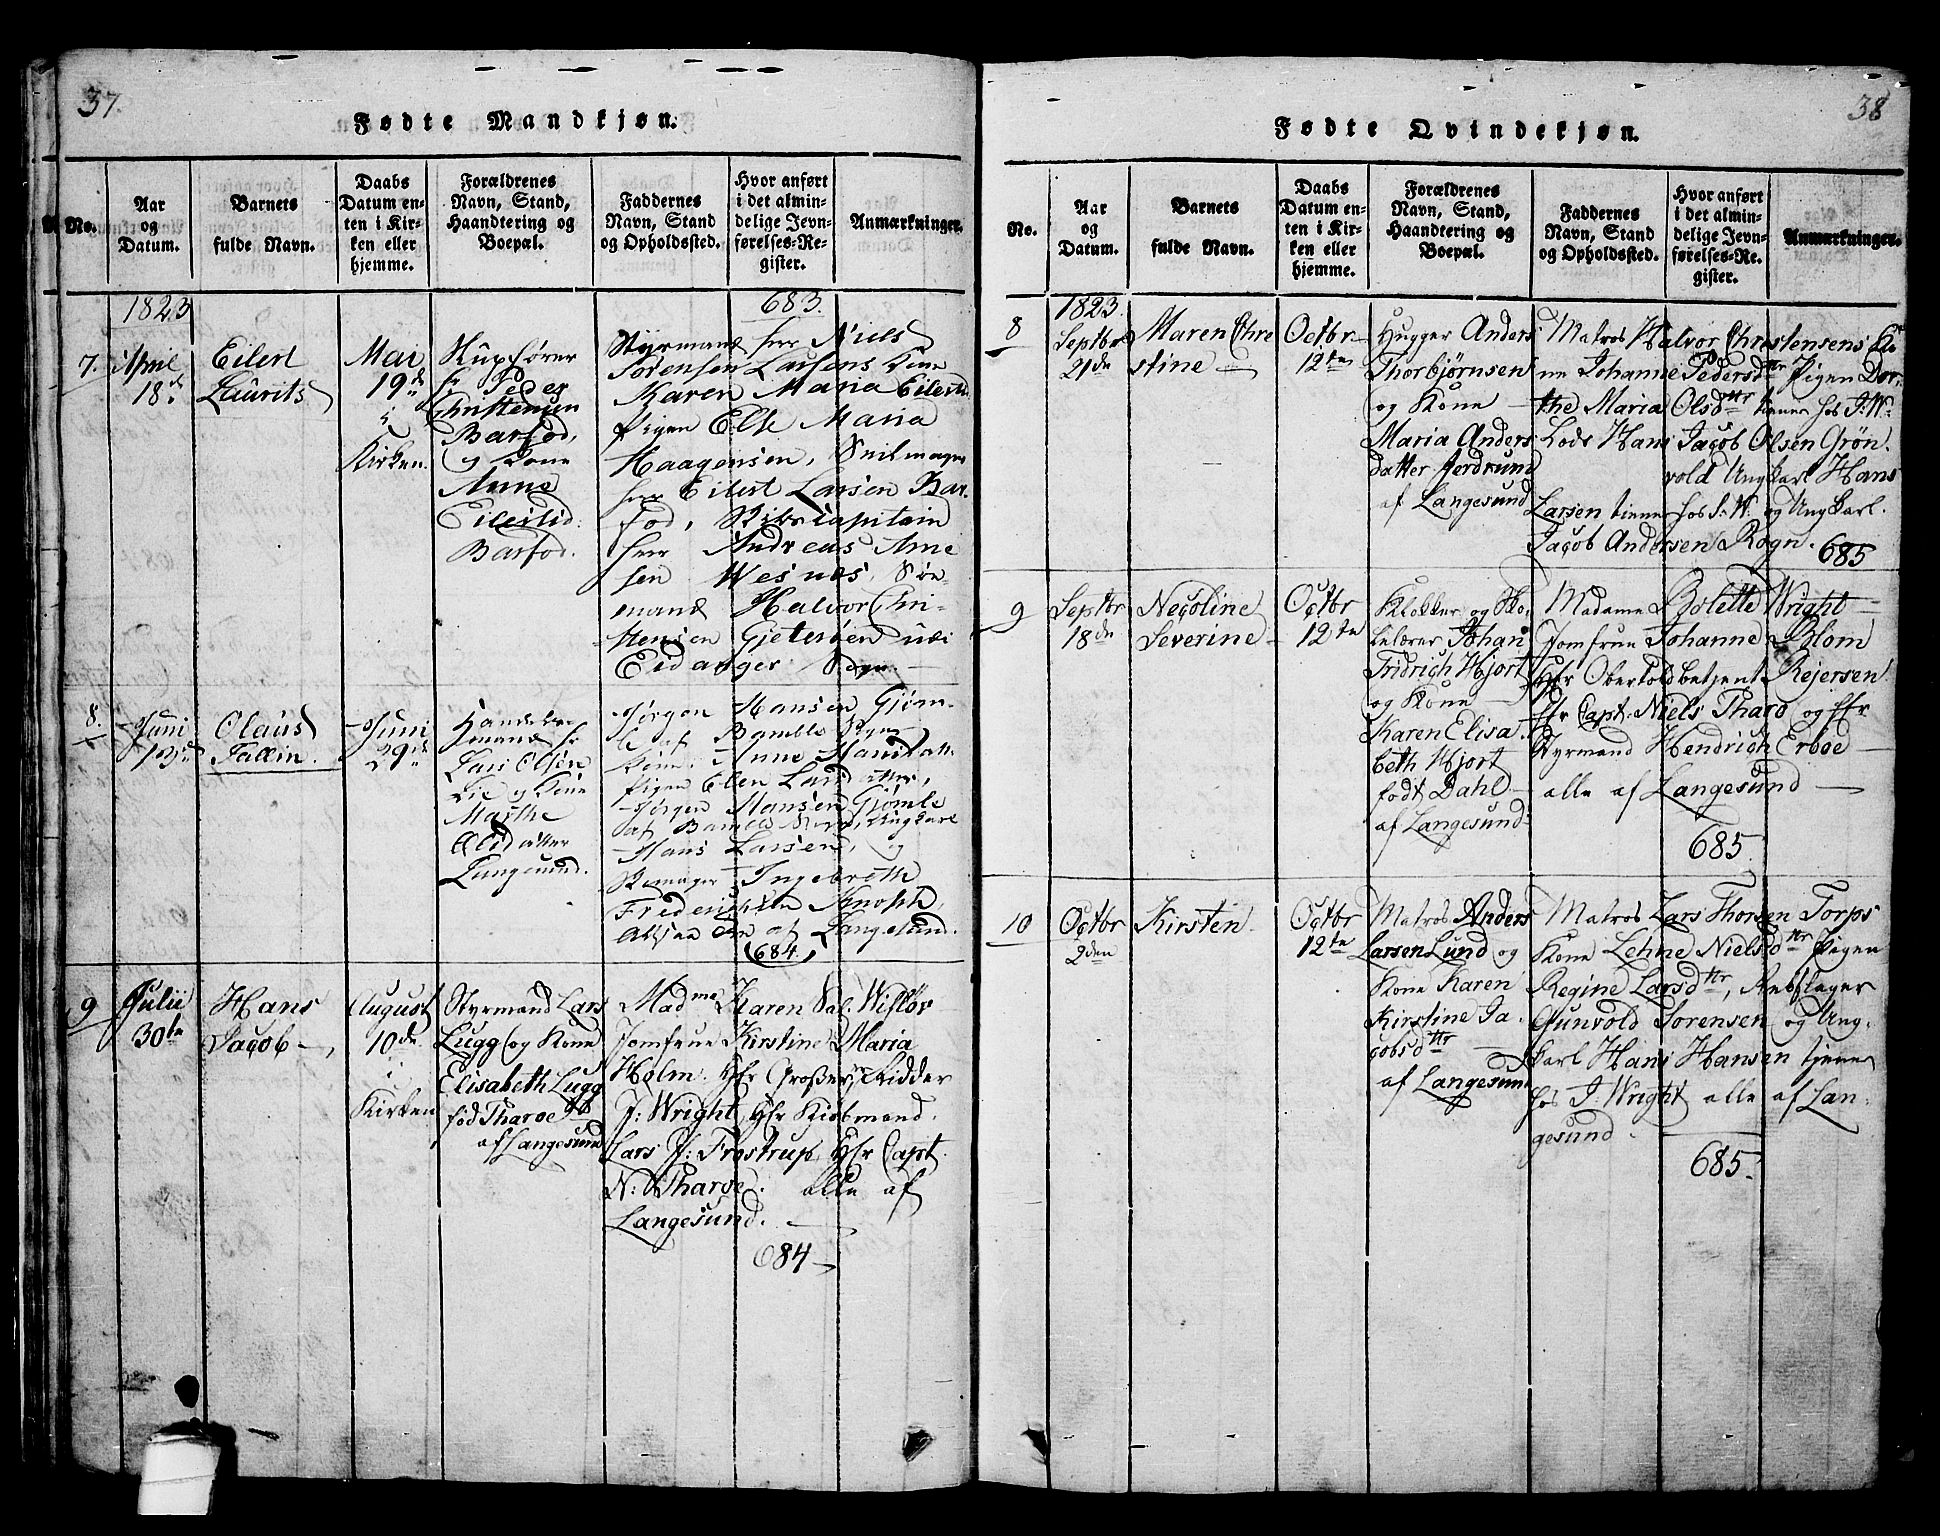 37.
Fødte Mandkjøn.
No.
Aar
og
Datum.
Barnets
fulde Navn.
Daabs
Datum en-
ten i Kir-
ken eller
hjemme.
Forældrenes
Navn, Stand,
Haandtering og
Boepæl.
Faddernes
Navn, Stand
og Opholdssted.
Hvor anført
i det almin-
delige Jevn-
førelses-Re-
gister.
Anmærkninger.
1823
683.
7.
April
18de
Eilert
Laurits
Mai
19de
i
Kirken.
Skipsfører
hr Peder
Christensen
Barfod,
og Kone
Anne
Eilertsd.
Barfod.
Styrmand herr Niels
Sørensen Larsens Kone
Karen Maria Eilertsd.
Pigen Else Maria
Haagensen, Snilmager
herr Eilert Larsen Bar-
fod, Skibscapitain
herr Andreas Arne
sen Wesnæs, Søe-
mand Halvor Chri-
stensen Gjeterøen udi
Eidanger Sogn.
8.
Juni
Olaus
Tallin.
Juni
29de
Handels-
mand hr
Lars Olsen
Lie og Kone
Marthe
Olsdatter
Langesund.
Jørgen Hansen Gjøm-
le af Bamble Sogn
Kone Anne Hansdatt.
Pigen Elen Larsdatter,
Jørgen Hansen Gjømle
af Bamble Sogn, Ungkarl
Hans Larsen, og
Skomager Ingebreth
Frederichsen Knoph,
af Langesund.
684.
9
Julii
30te
Hans
Jacob
August
10de
i
Kirken
Styrmand Lars
Lugg og Kone
Elisabeth Lugg
fød Tharoe
af Langesund
Madme Karen Sal. Wifløe
Jomfrue Kirstine Maria
Holm. Hr Grosserer Ridder
J: Wright, Hr Kiøbmand
Lars J: Frostrup, Hr Capt.
N: Tharoe. alle af
Langesund.
684
38
Fødte Qvindekjøn.
No.
Aar
og
Datum.
Barnets
fulde Navn.
Daabs
Datum en-
ten i Kir-
ken eller
hjemme.
Forældrenes
Navn, Stand,
Haandtering og
Boepæl.
Faddernes
Navn, Stand
og Opholdssted.
Hvor anført
i det almin-
delige Jevn-
førelses-Re-
gister.
Anmærkninger.
8
1823.
Septbr
21de
Maren Chre
stine
Octbr
12te
Hugger Anders
Thorbjørnsen
og Kone
Maria Anders
datter Jerdrund
af Langesund
Matros Halvor Christensens Ko
ne Johanne Pedersdtr Pigen Dor-
the Maria Olsdtr tiener hos J: W.
Lods Hans Jacob Olsen Grøn
vold Ungkarl Hans
Larsen tiener hos J: W: og Ungkarl.
Jacob Andersen Rogn.
685
9
Septbr
18de
Necoline
Severine
Octbr
12te
Klokker og Sko-
lelærer Johan
Fridrich Hjort
og Kone
Karen Elisa
beth Hjort
født Dahl
af Langesund
Madame Bolette Wright
Jomfrue Johanne Blom
Hr Obertoldbetjent Rejersen
Hr Capt. Niels Tharo og Hr
Styrmand Hendrich Erboe
alle af Langesund
685
10
Octbr
2den
Kirsten
Octbr
12te
Matros Anders
Larsen Lund og
Kone Karen
Kirstine Ja
cobsdtr
af Langesund
Matros Lars Thorsen Torps
Kone Lehne Nielsdtr Pigen
Regine Larsdtr, Rebslager
Gunvold Sorensen og Ung-
karl Hans Hansen tjener
hos J: Wright alle af Lan-
gesund
685.